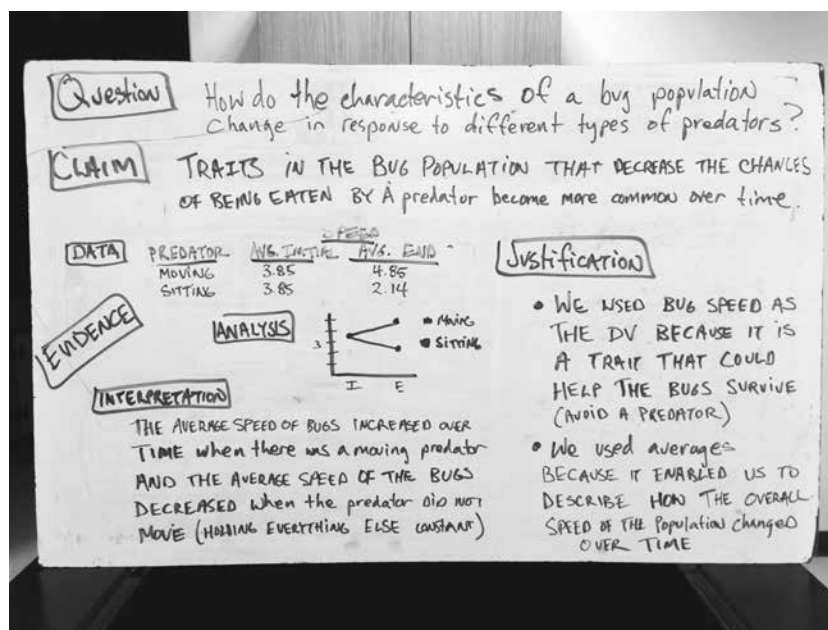 Question
How do the characteristics of a bug population
change in response to different types of predators?
CLAIM
TRAITS IN THE BUG POPULATION THAT DECREASE THE CHANCES
OF BEING EATEN BY A predator become more common over time.
EVIDENCE
DATA
SPEED
PREDATOR AVG. INITIAL AVG. END
MOVING 3.85 4.85
SITTING 3.85 2.14
ANALYSIS
3
I E
MOVING
SITTING
INTERPRETATION
THE AVERAGE SPEED OF BUGS INCREASED OVER
TIME when there was a moving predator
AND THE AVERAGE SPEED OF THE BUGS
DECREASED when the predator DID NOT
MOVE (HOLDING EVERYTHING ELSE CONSTANT)
JUSTIFICATION
• WE USED BUG SPEED AS
THE DV BECAUSE IT IS
A TRAIT THAT COULD
HELP THE BUGS SURVIVE
(AVOID A PREDATOR)
• We used averages
BECAUSE IT ENABLED US TO
DESCRIBE HOW THE OVERALL
SPEED OF THE Population Changed
OVER TIME